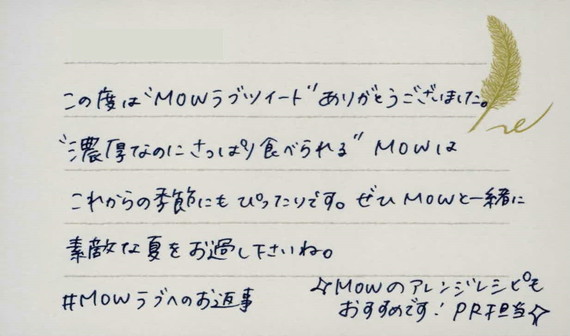 この度は"MOWラブツイート"ありがとうございました。
"濃厚なのにさっぱり食べられる" MOWは
これからの季節にもぴったりです。ぜひMOWと一緒に
素敵な夏をお過し下さいね。
#MOWラブへのお返事
☆MOWのアレンジレシピも
おすすめです! PR担当☆